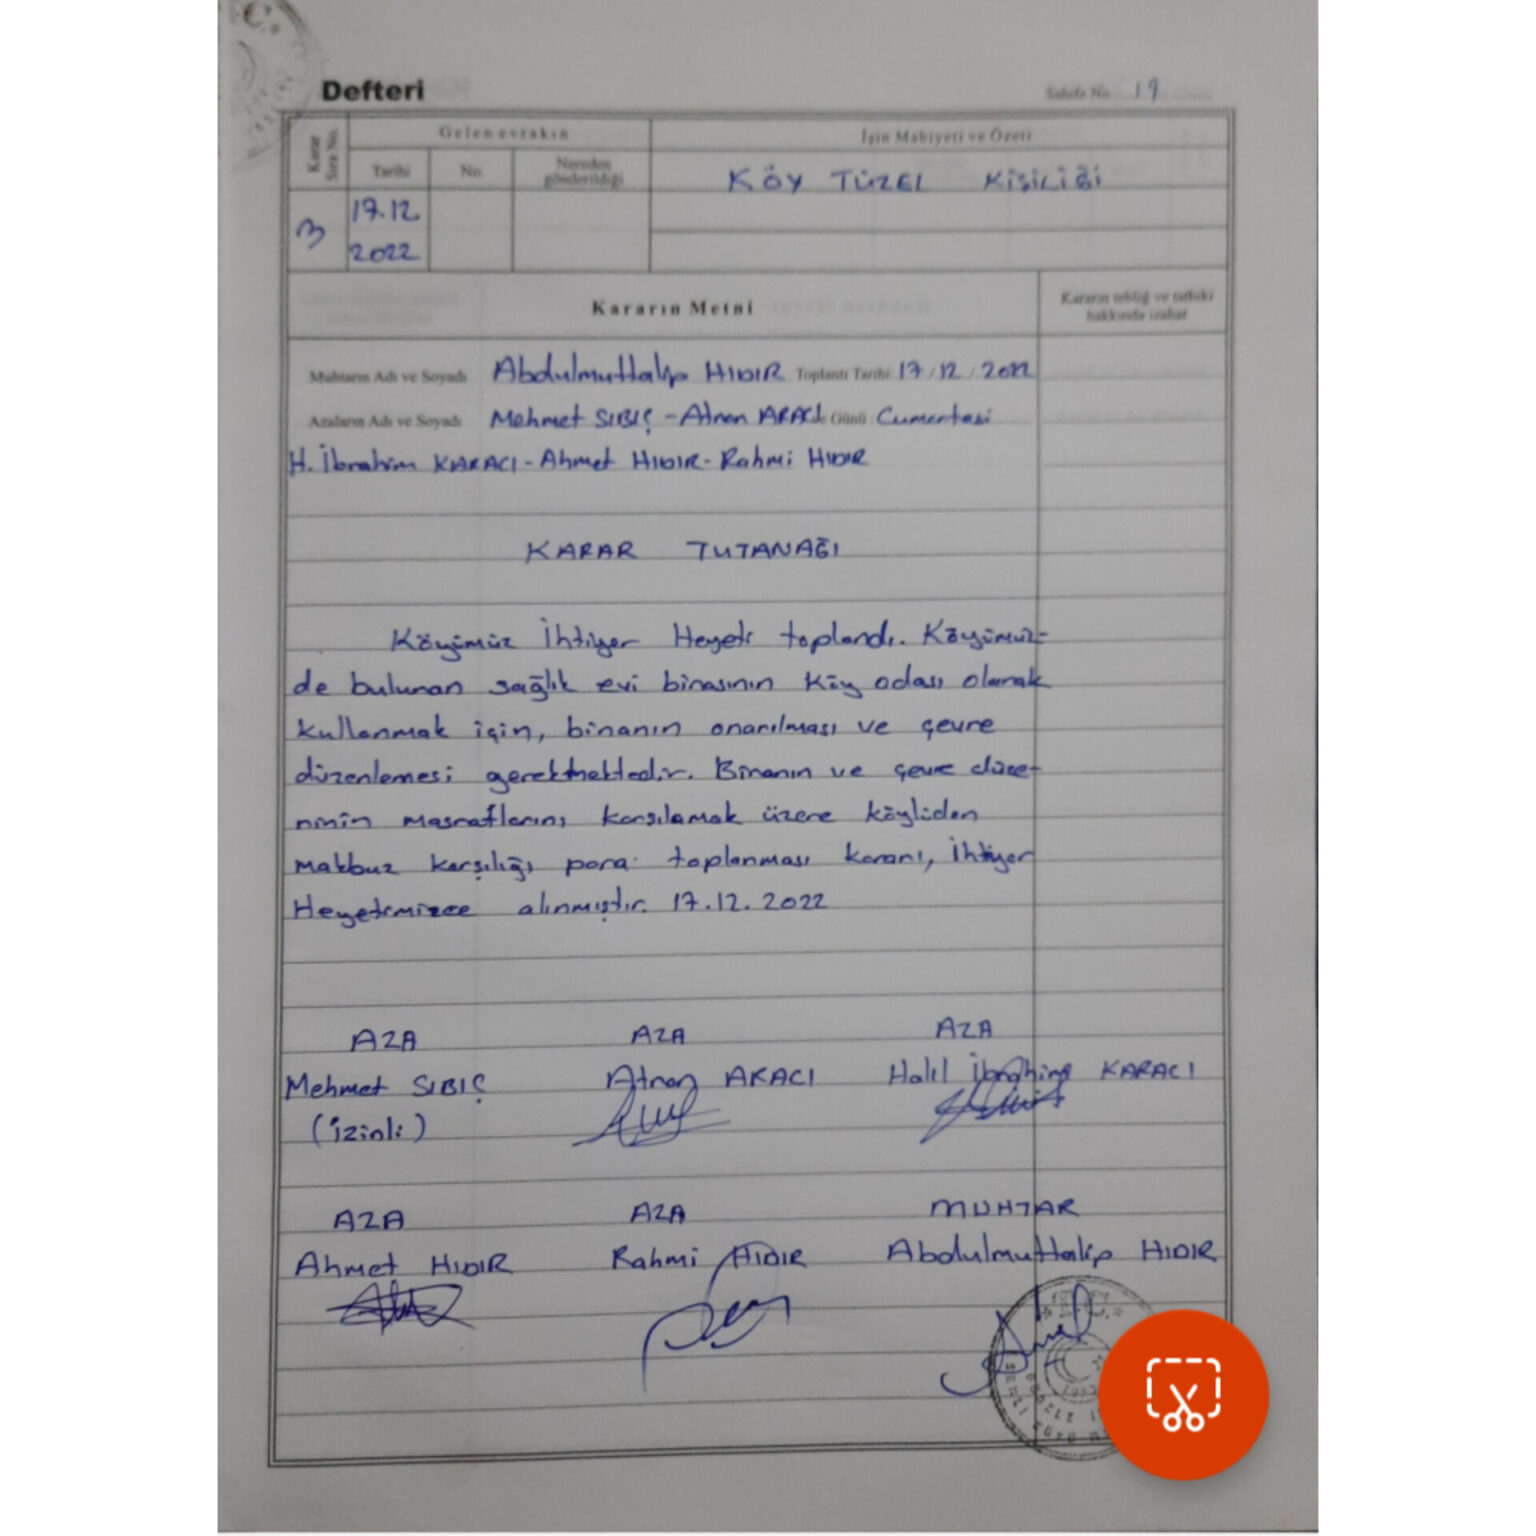 Defteri
Sahife No 19
Karar Sıra No.
Gelen evrakın
İşin Mahiyeti ve Özeti
Tarihi No. Nereden gönderildiği
KÖY TÜZEL KİŞİLİĞİ
3
17.12.
2022
Kararın Metni
Kararın tebliğ ve tatbiki hakkında izahat
Muhtarın Adı ve Soyadı Abdulmuttalip HIDIR Toplantı Tarihi: 17/12/2022
Azaların Adı ve Soyadı Mehmet SIBIÇ - Atnan ARACI Günü: Cumartesi
H. İbrahim KARACI - Ahmet HIDIR - Rahmi HIDIR
KARAR TUTANAĞI
Köyümüz İhtiyar Heyeti toplandı. Köyümüz-
de bulunan sağlık evi binasının Köy odası olarak
kullanmak için, binanın onarılması ve çevre
düzenlemesi gerekmektedir. Binanın ve çevre düze-
ninin masraflarını karşılamak üzere köylüden
makbuz karşılığı para toplanması kararı, İhtiyar
Heyetimizce alınmıştır. 17.12.2022
AZA AZA AZA
Mehmet SIBIÇ Atnan ARACI Halil İbrahim KARACI
(İzinli)
AZA AZA MUHTAR
Ahmet HIDIR Rahmi HIDIR Abdulmuttalip HIDIR